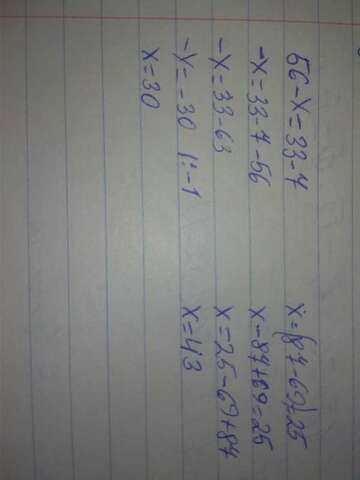 56-x=33-7
-x=33-7-56
-x=33-63
-x=-30 |:-1
x=30
x-(87-69)=25
x-87+69=25
x=25-69+87
x=43